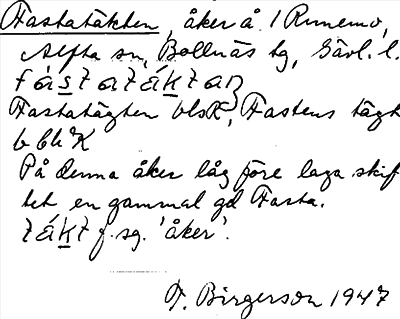 Fastatäkten, åker å. 1 Runemo,
Alfta sn, Bollnäs tg, Gävl. l.
fástatáktan
Fastatägten blsK, Fastens tägt
b blk K
På denna åker låg före laga skif
tet en gammal gd Fasta.
tákt f. sg. 'åker'.
F. Birgerson 1947